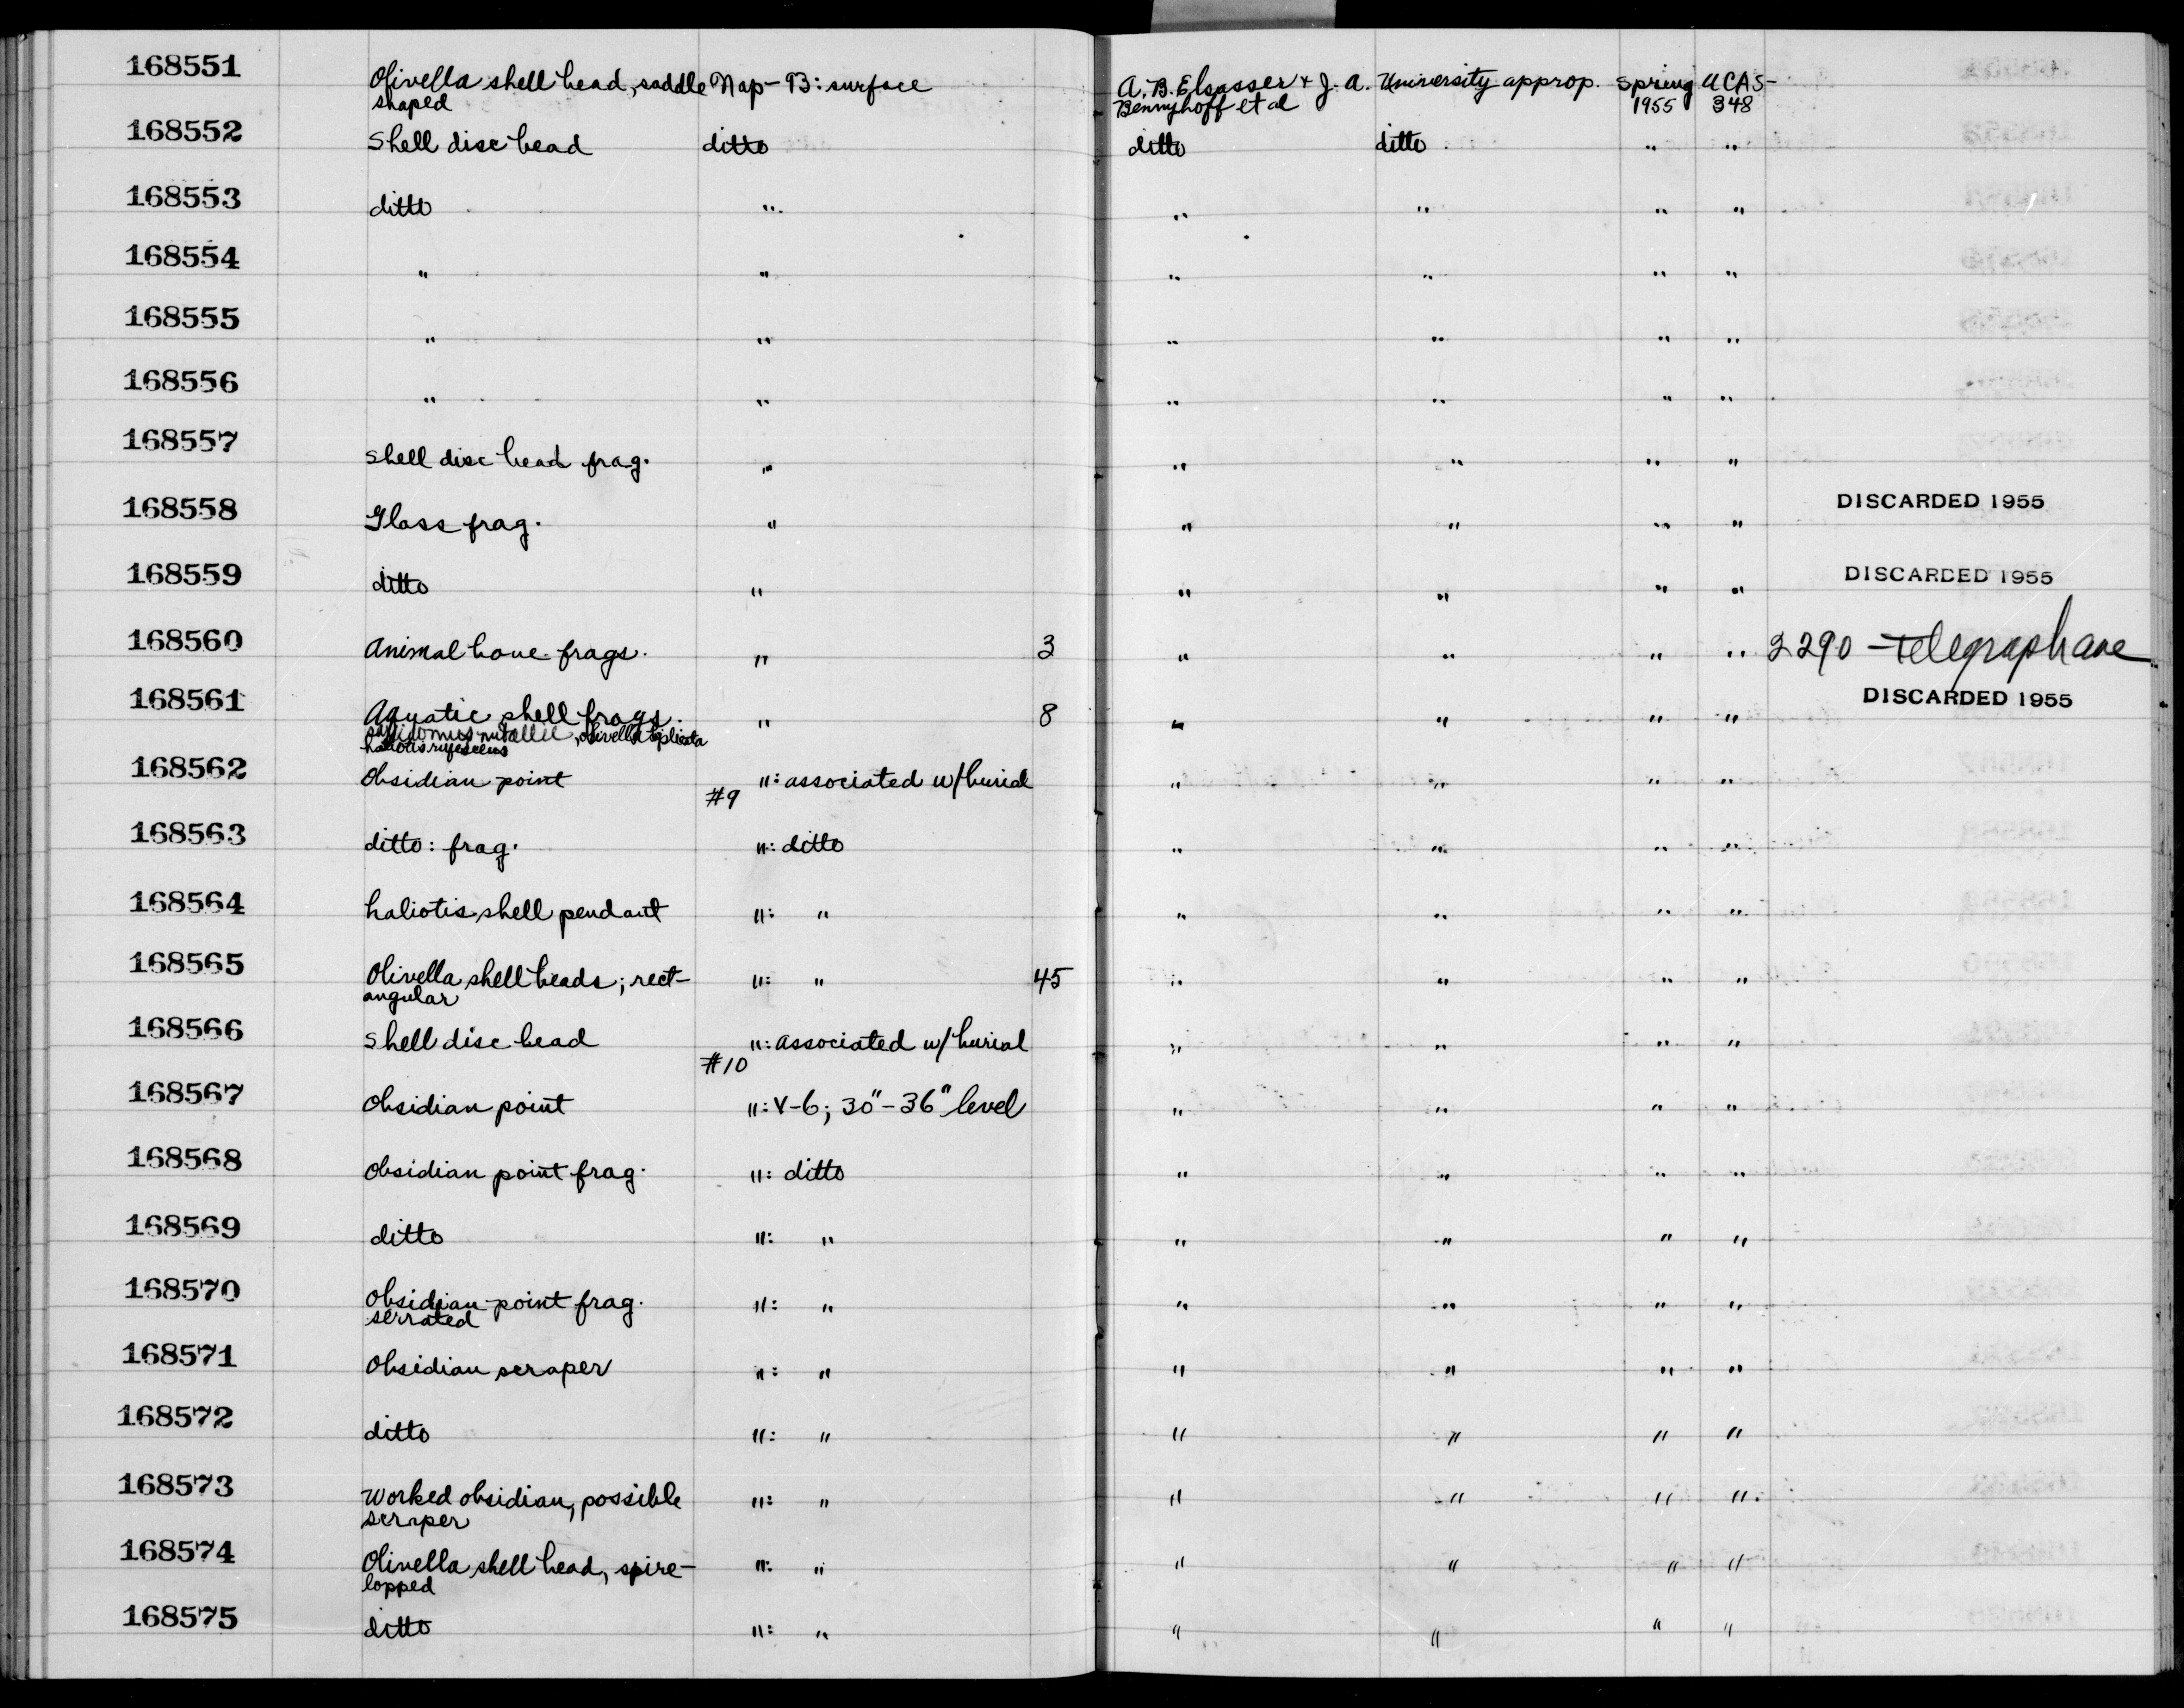 168551 Olivella shell bead, saddle Nap-B: surface A. B. Elsasser + J. A. University approp. Spring UCAS-
shaped Bennyhoff et al 1955 348
168552 Shell disc bead ditto ditto ditto " "
168553 ditto " " " " "
168554 " " " " " "
168555 " " " " " "
168556 " " " " " "
168557 shell disc bead frag. " " " " "
168558 Glass frag. " " " " " DISCARDED 1955
168559 ditto " " " " " DISCARDED 1955
168560 Animal bone frags. " 3 " " " " 2290-Telegraph ave
168561 Aquatic shell frags. " 8 " " " " DISCARDED 1955
nutallii, olivella biplicata
haliotis rufescens
168562 Obsidian point ": associated w/burial " " " "
#9
168563 ditto: frag. ": ditto " " " "
168564 haliotis shell pendant ": " " " " "
168565 Olivella shell beads; rect- ": " 45 " " " "
angular
168566 Shell disc bead ": associated w/burial " " " "
#10
168567 Obsidian point ": V-6; 30"-36" level " " " "
168568 Obsidian point frag. ": ditto " " " "
168569 ditto ": " " " " "
168570 Obsidian point frag. ": " " " " "
serrated
168571 Obsidian scraper ": " " " " "
168572 ditto ": " " " " "
168573 Worked obsidian, possible ": " " " " "
scraper
168574 Olivella shell bead, spire- ": " " " " "
lopped
168575 ditto ": " " " " "